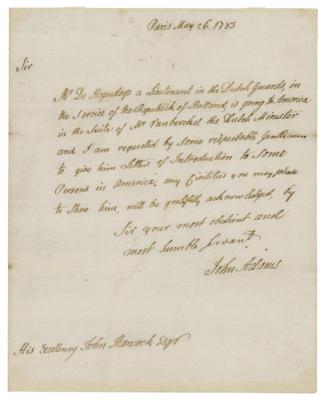 Paris May 26. 1783
Sir
Mr. De Hogendorp a Lieutenant in the Dutch Guards, in
the Service of the Republick of Holland, is going to America
in the Suite of Mr Vanberckel the Dutch Minister
and I am requested by some respectable Gentlemen
to give him Letters of Introduction to some
Persons in America, any Civilities you may please
to Shew him, will be gratefully acknowledged, by
Sir your most obedient and
most humble Servant.
John Adams
His Excellency John Hancock Esqr